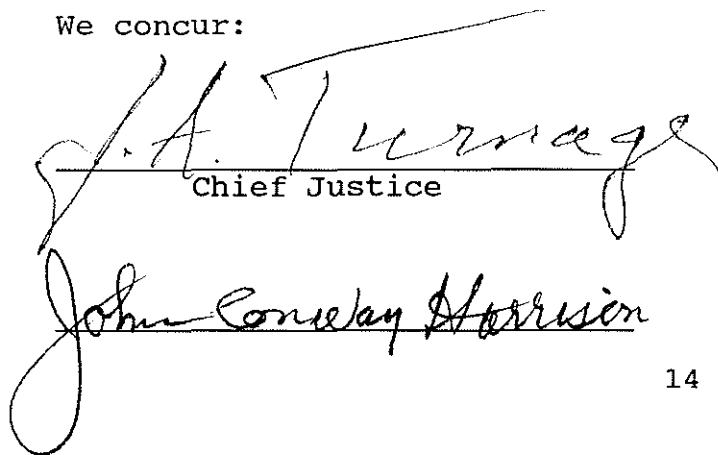 We concur:
J. A. Turnage
Chief Justice
John Conway Harrison
14